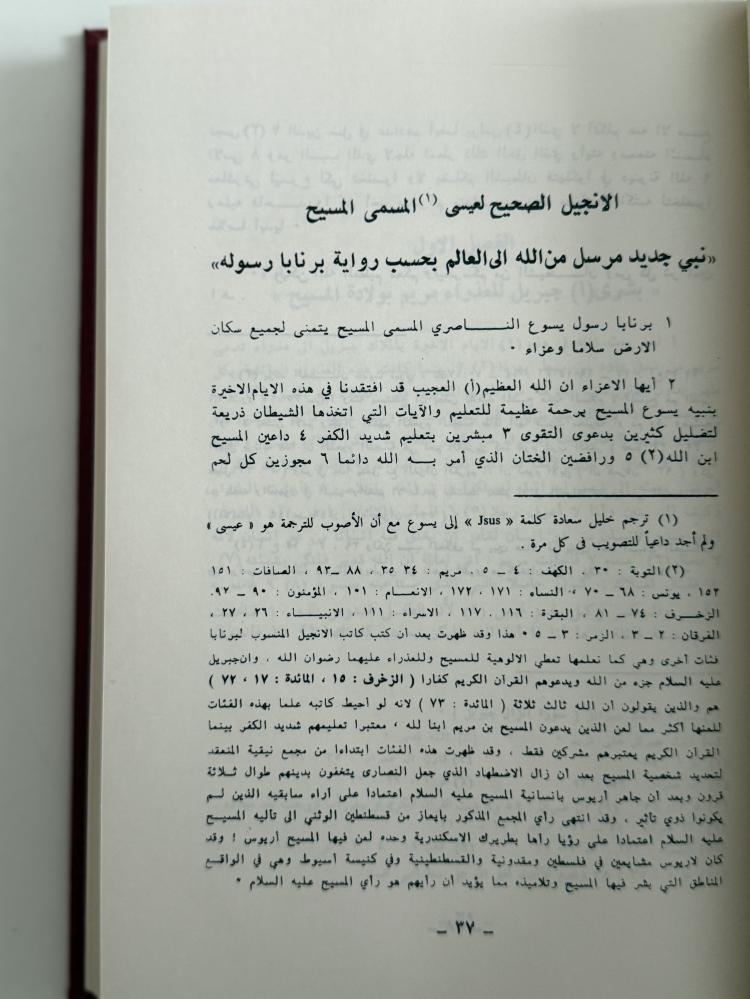 الانجيل الصحيح لعيسى (١) المسمى المسيح
«نبي جديد مرسل من الله الى العالم بحسب رواية برنابا رسوله»
١ برنابا رسول يسوع النـــــاصري المسمى المسيح يتمنى لجميع سكان
الارض سلاما وعزاء ٠
٢ أيها الاعزاء ان الله العظيم(أ) العجيب قد افتقدنا في هذه الايام الاخيرة
بنبيه يسوع المسيح برحمة عظيمة للتعليم والآيات التي اتخذها الشيطان ذريعة
لتضليل كثيرين بدعوى التقوى ٣ مبشرين بتعليم شديد الكفر ٤ داعين المسيح
ابن الله(٢) ٥ ورافضين الختان الذي أمر بـــه الله دائما ٦ مجوزين كل لحم
(١) ترجم خليل سعادة كلمة « Jsus » إلى يسوع مع أن الأصوب للترجمة هو « عيسى »
ولم أجد داعياً للتصويب فى كل مرة .
(٢) التوبة : ٣٠ . الكهف : ٤ – ٥ . مريم : ٣٤ ٣٥ ، ٨٨ –٩٣ ، الصافات : ١٥١
١٥٢ . يونس : ٦٨ – ٧٠ ، النساء : ١٧١ ، ١٧٢ ، الانعـــام : ١٠١ ، المؤمنون : ٩٠ – ٩٢.
الزخـرف : ٧٤ – ٨١ ، البقرة : ١١٦ . ١١٧ ، الاسراء : ١١١ ، الانبيـــــاء : ٢٦ ، ٢٧ ،
الفرقان : ٢ – ٣ ، الزمر : ٣ – ٥ ٠ هذا وقد ظهرت بعد أن كتب كاتب الانجيل المنسوب لبرنابا
فئات أخرى وهي كما نعلمها تعطي الالوهية للمسيح وللعذراء عليهما رضوان الله ، وان جبريل
عليه السلام جزء من الله ويدعوهم القرآن الكريم كفارا ( الزخرف : ١٥ ، المائدة : ١٧ ، ٧٢ )
هم والذين يقولون أن الله ثالث ثلاثة ( المائدة : ٧٣ ) لانه لو أحيط كاتبه علما بهذه الفئات
للعنها أكثر مما لعن الذين يدعون المسيح بن مريم ابنا لله ، معتبرا تعليمهم شديد الكفر بينما
القرآن الكريم يعتبرهم مشركين فقط ، وقد ظهرت هذه الفئات ابتداءا من مجمع نيقية المنعقد
لتحديد شخصية المسيح بعد أن زال الاضطهاد الذي جعل النصارى يتخفون بدينهم طوال ثـلاثة
قرون وبعد أن جاهر أريوس بانسانية المسيح عليه السلام اعتمادا على آراء سابقيه الذين لـم
يكونوا ذوي تأثير ، وقد انتهى رأي المجمع المذكور بايعاز من قسطنطين الوثني الى تأليه المسيـح
عليه السلام اعتمادا على رؤيا رآها بطريرك الاسكندرية وحده لعن فيها المسيح أريوس ! وقد
كان لاريوس مشايعين في فلسطين ومقدونية والقسطنطينية وفي كنيسة أسيوط وهي في الواقـع
المناطق التي بشر فيها المسيح وتلاميذه مما يؤيد أن رأيهم هو رأي المسيح عليه السلام ٠
– ٣٧ –